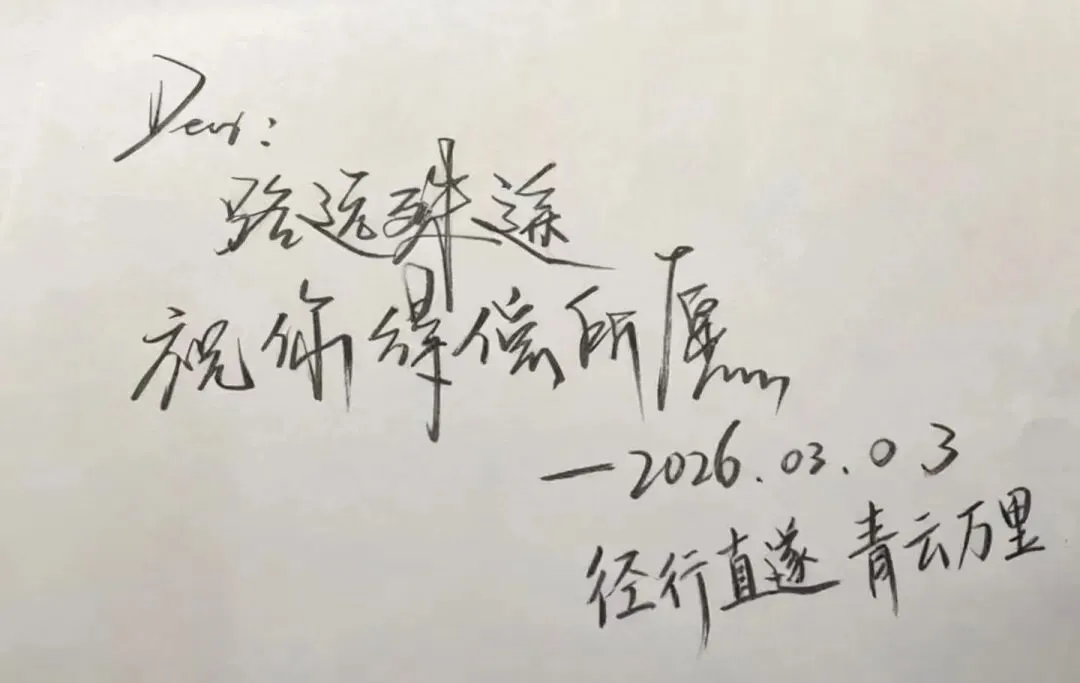 Dear:
路远殊途
祝你得偿所愿
—2026.03.03
径行直遂 青云万里